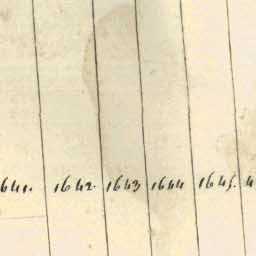 641. 1642. 1643 1644 1645. 4